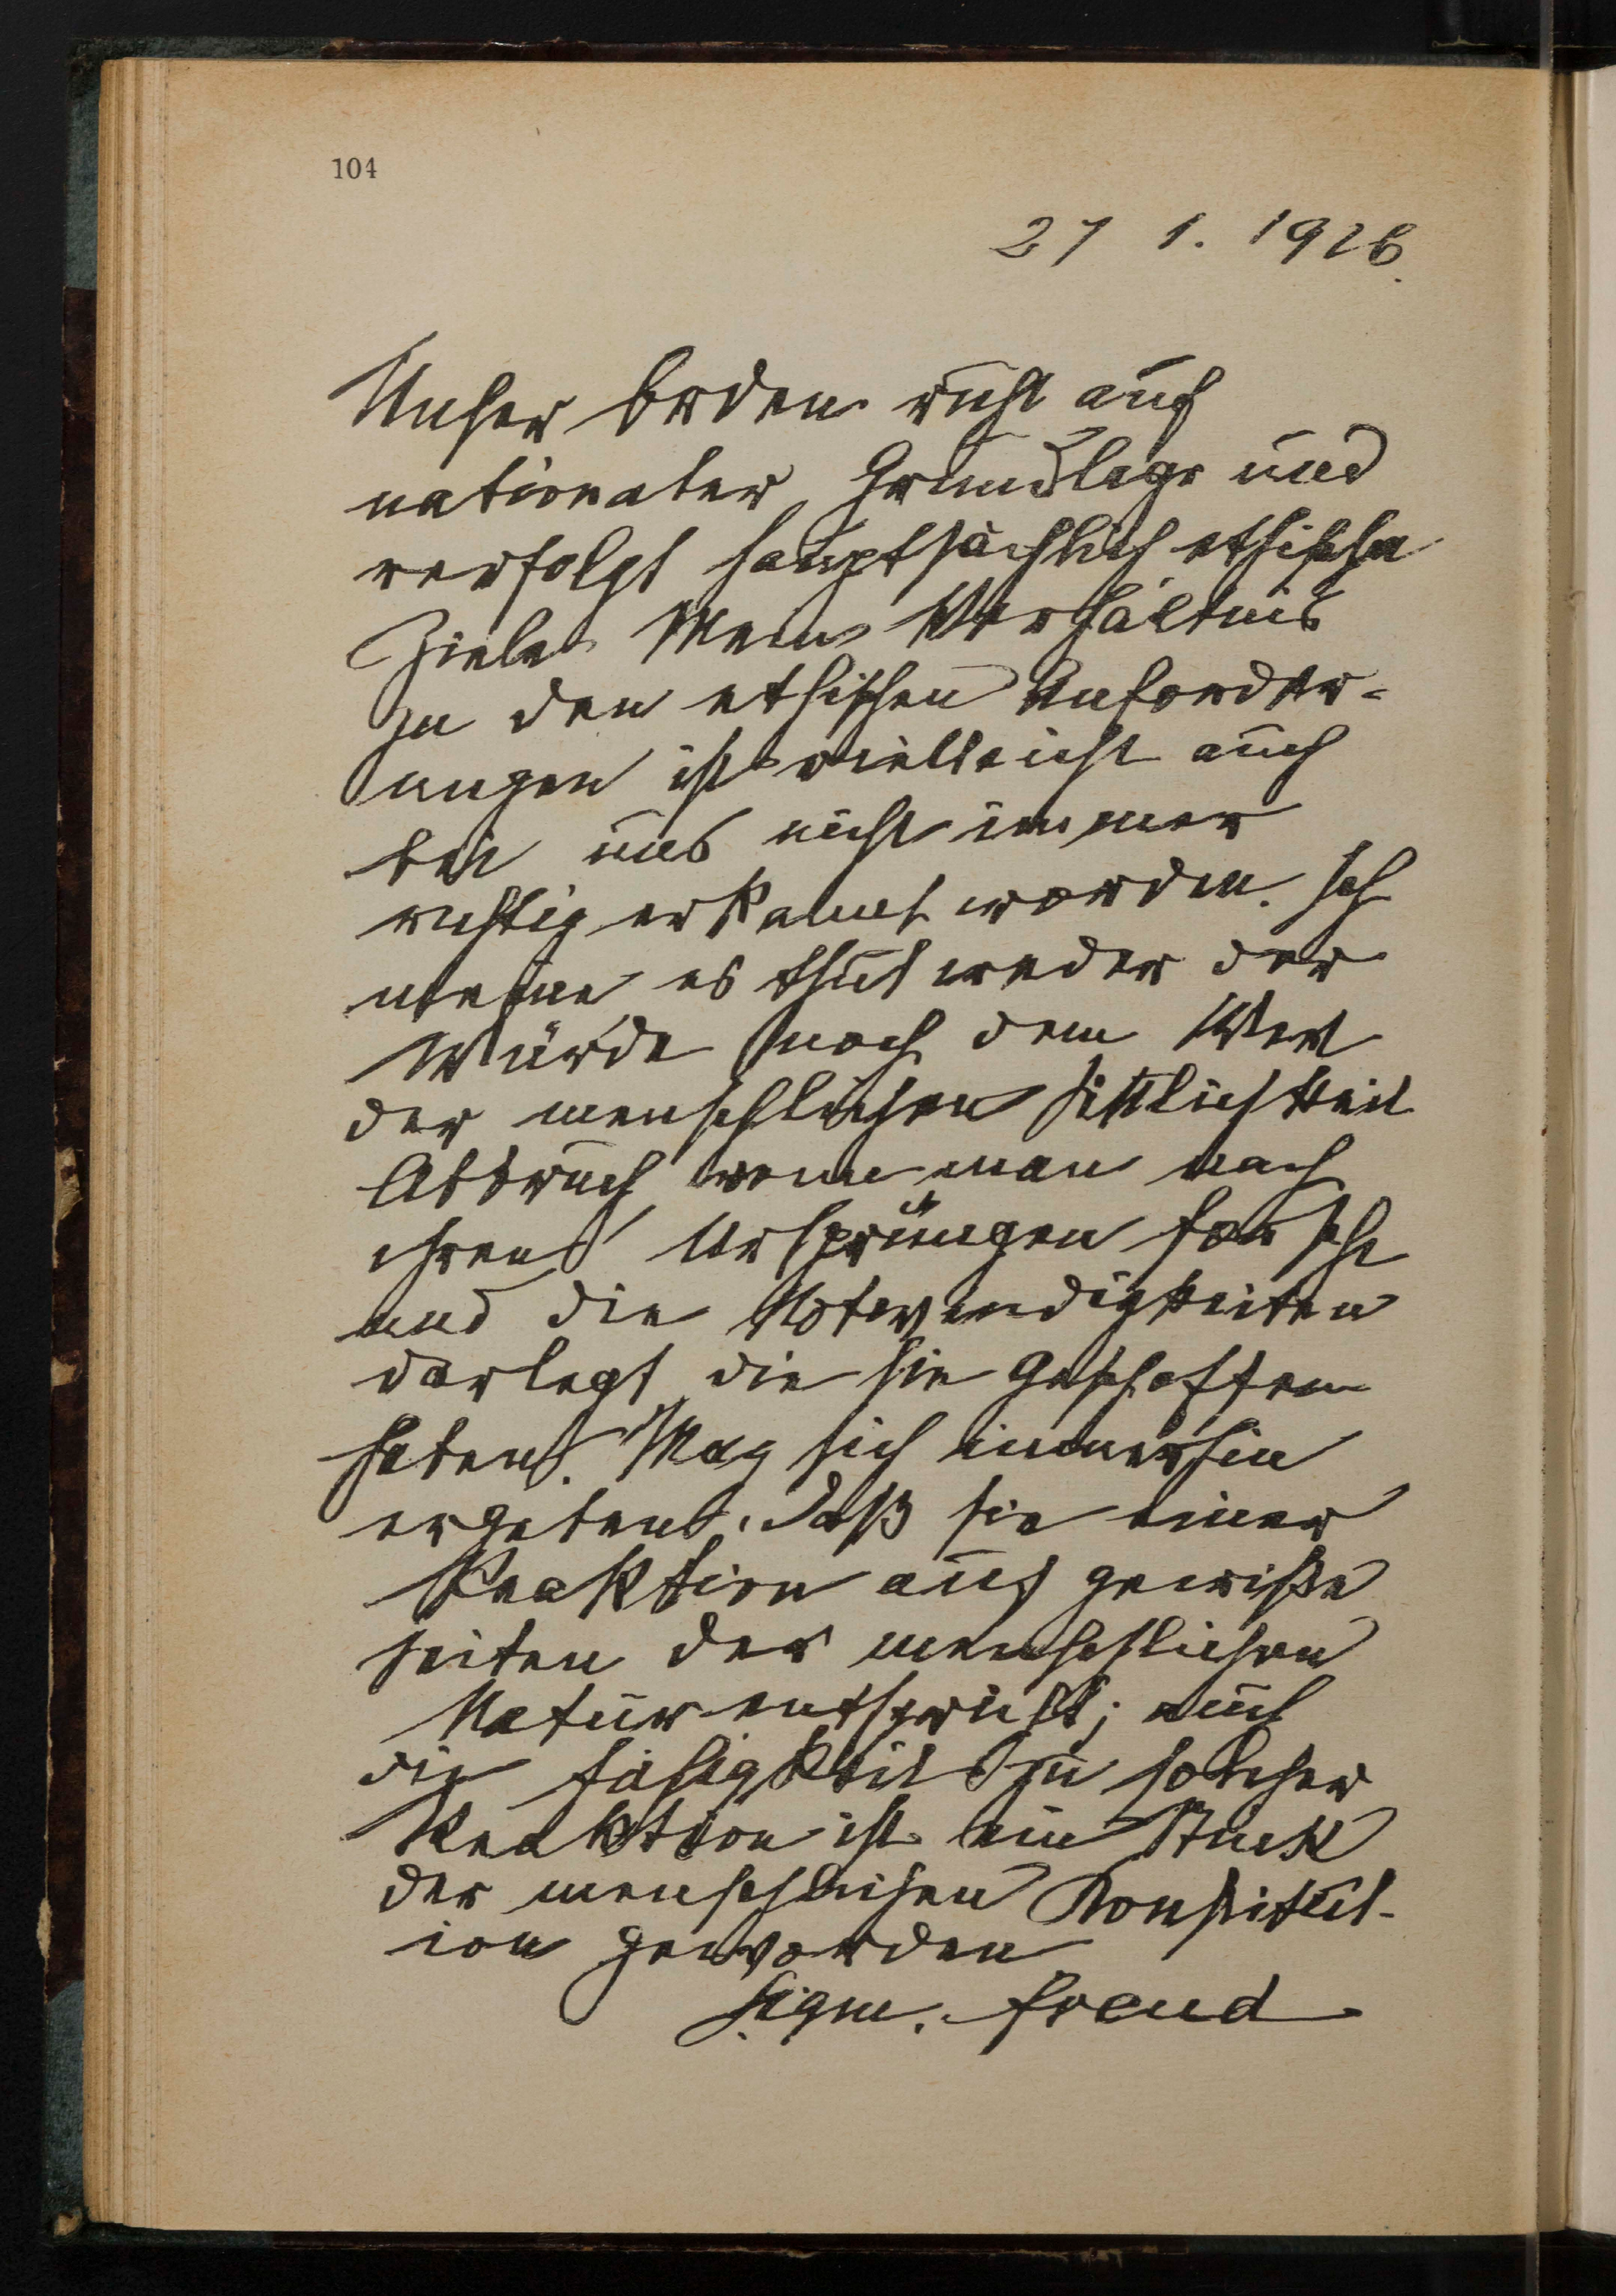 104
27 1. 1926.
Unser Orden ruht auf
nationaler Grundlage und
verfolgt hauptsächlich ethische
Ziele. Mein Verhältnis
zu den ethischen Anforder-
ungen ist vielleicht auch
bei uns nicht immer
richtig erkannt worden. Ich
meine es thut weder der
Würde noch dem Wert
der menschlichen Sittlichkeit
Abbruch wenn man nach
ihren Ursprüngen forscht
und die Notwendigkeiten
darlegt die sie geschaffen
haben. Mag sich immerhin
ergeben, daß sie einer
Reaktion auf gewiße
Seiten der menschlichen
Natur entspricht; auch
die Fähigkeit zu solcher
Reaktion ist ein Stück
der menschlichen Konstitut-
ion geworden
Sigm. Freud